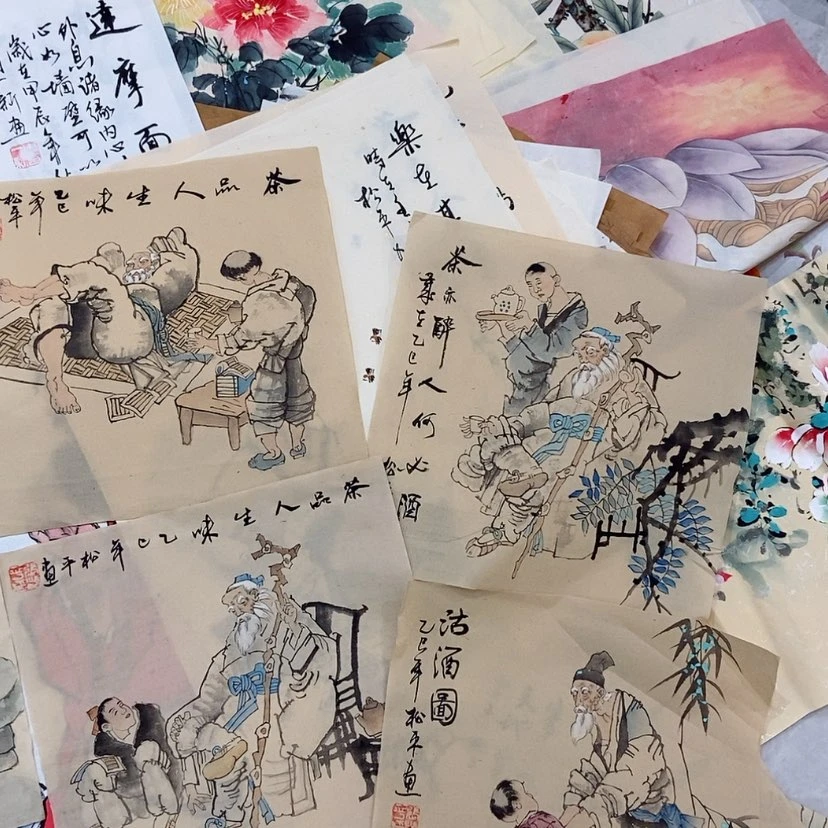 達摩面
外息諸緣内心
心如墻壁可以
歲在甲辰年
畫
樂在其
時在
松平
茶品人生味乙巳年松平
茶亦醉人何必酒
歲在乙巳年松
茶品人生味乙巳年松平畫
沽酒圖
乙巳年松平畫